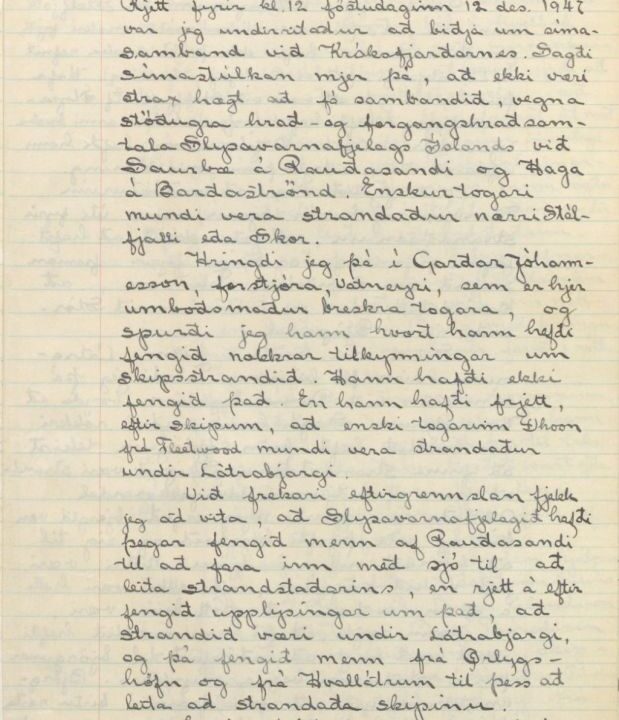 Rjett fyrir kl. 12 föstudaginn 12 des. 1947
var jeg undirritaður að biðja um síma-
samband við Króksfjarðarnes. Sagði
símastúlkan mjer þá, að ekki væri
strax hægt að fá sambandið, vegna
stöðugra hrað- og forgangshraðsam-
tala Slysavarnafjelags Íslands við
Saurbæ á Rauðasandi og Haga
á Barðaströnd. Enskur togari
mundi vera strandaður nærri Stál-
fjalli eða Skor.
Hringdi jeg þá í Garðar Jóhann-
esson, forstjóra, Vatneyri, sem er hjer
umboðsmaður breskra togara, og
spurði jeg hann hvort hann hefði
fengið nokkrar tilkynningar um
skipsstrandið. Hann hafði ekki
fengið það. En hann hafði frjett,
eftir skipum, að enski togarinn Dhoon
frá Fleetwood mundi vera strandaður
undir Látrabjargi.
Við frekari eftirgrennslan fjekk
jeg að vita, að Slysavarnafjelagið hefði
þegar fengið menn af Rauðasandi
til að fara inn með sjó til að
leita strandstaðarins, en rjett á eftir
fengið upplýsingar um það, að
strandið væri undir Látrabjargi,
og þá fengið menn frá Örlygs-
höfn og frá Hvallátrum til þess að
leita að strandaða skipinu.